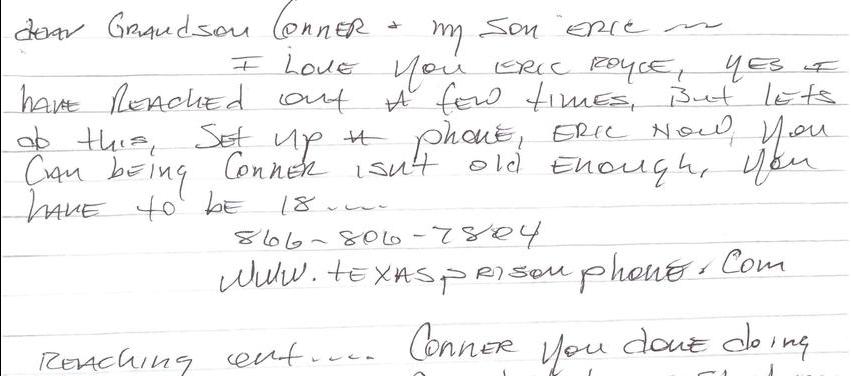 dear Grandson Conner + my son Eric ~
I Love You Eric Royce, yes I
have Reached out A few times, But lets
do this, Set up A phone, Eric Now, You
Can being Conner isn't old Enough, You
have to be 18.....
866-806-7804
www.texasprisonphone.com
Reaching out..... Conner you done doing